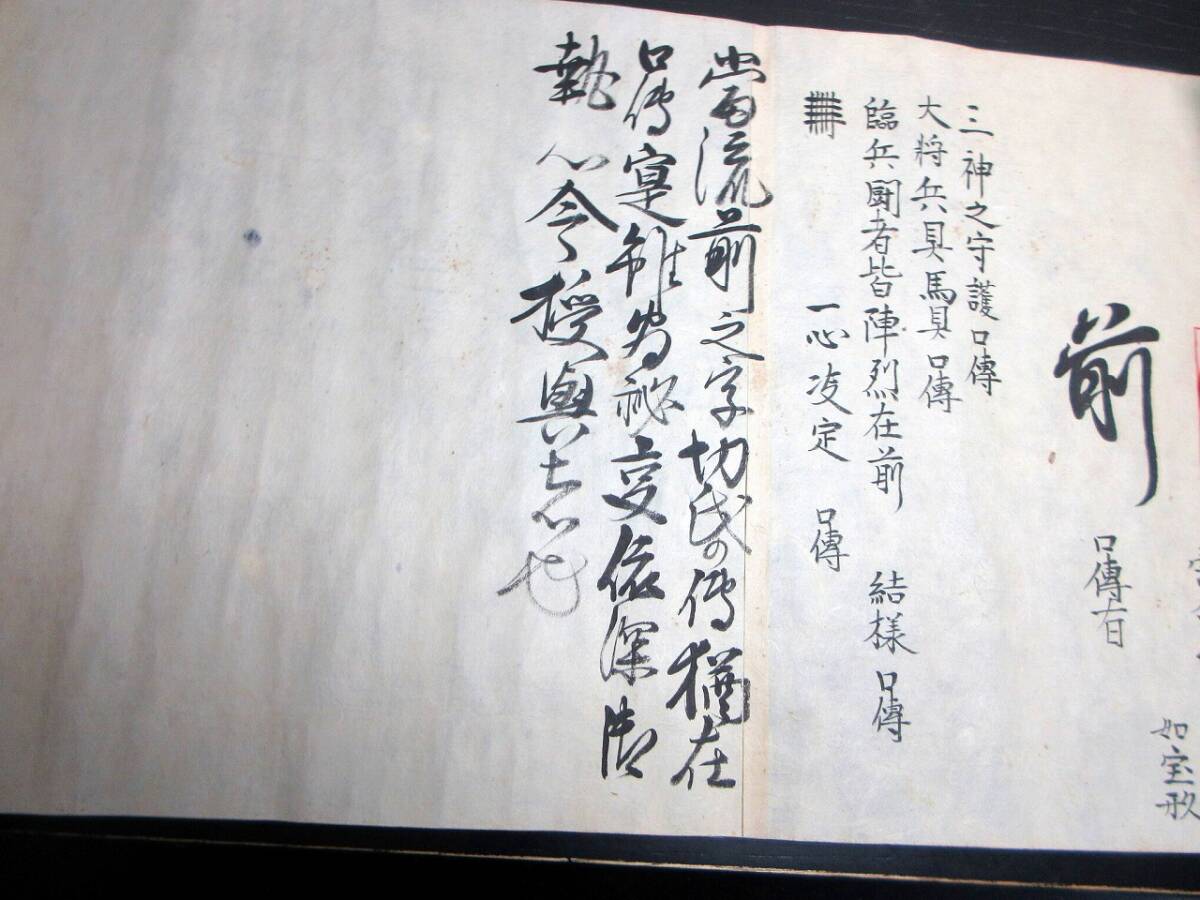 如宝形
前 口傳有
三神之守護口傳
大将兵具馬具口傳
臨兵闘者皆陣烈在前 結様 口傳
一心决定 口傳
當流前之字切氏の傳猶在
口傳寔雖為秘受依深御
執心令授與者也